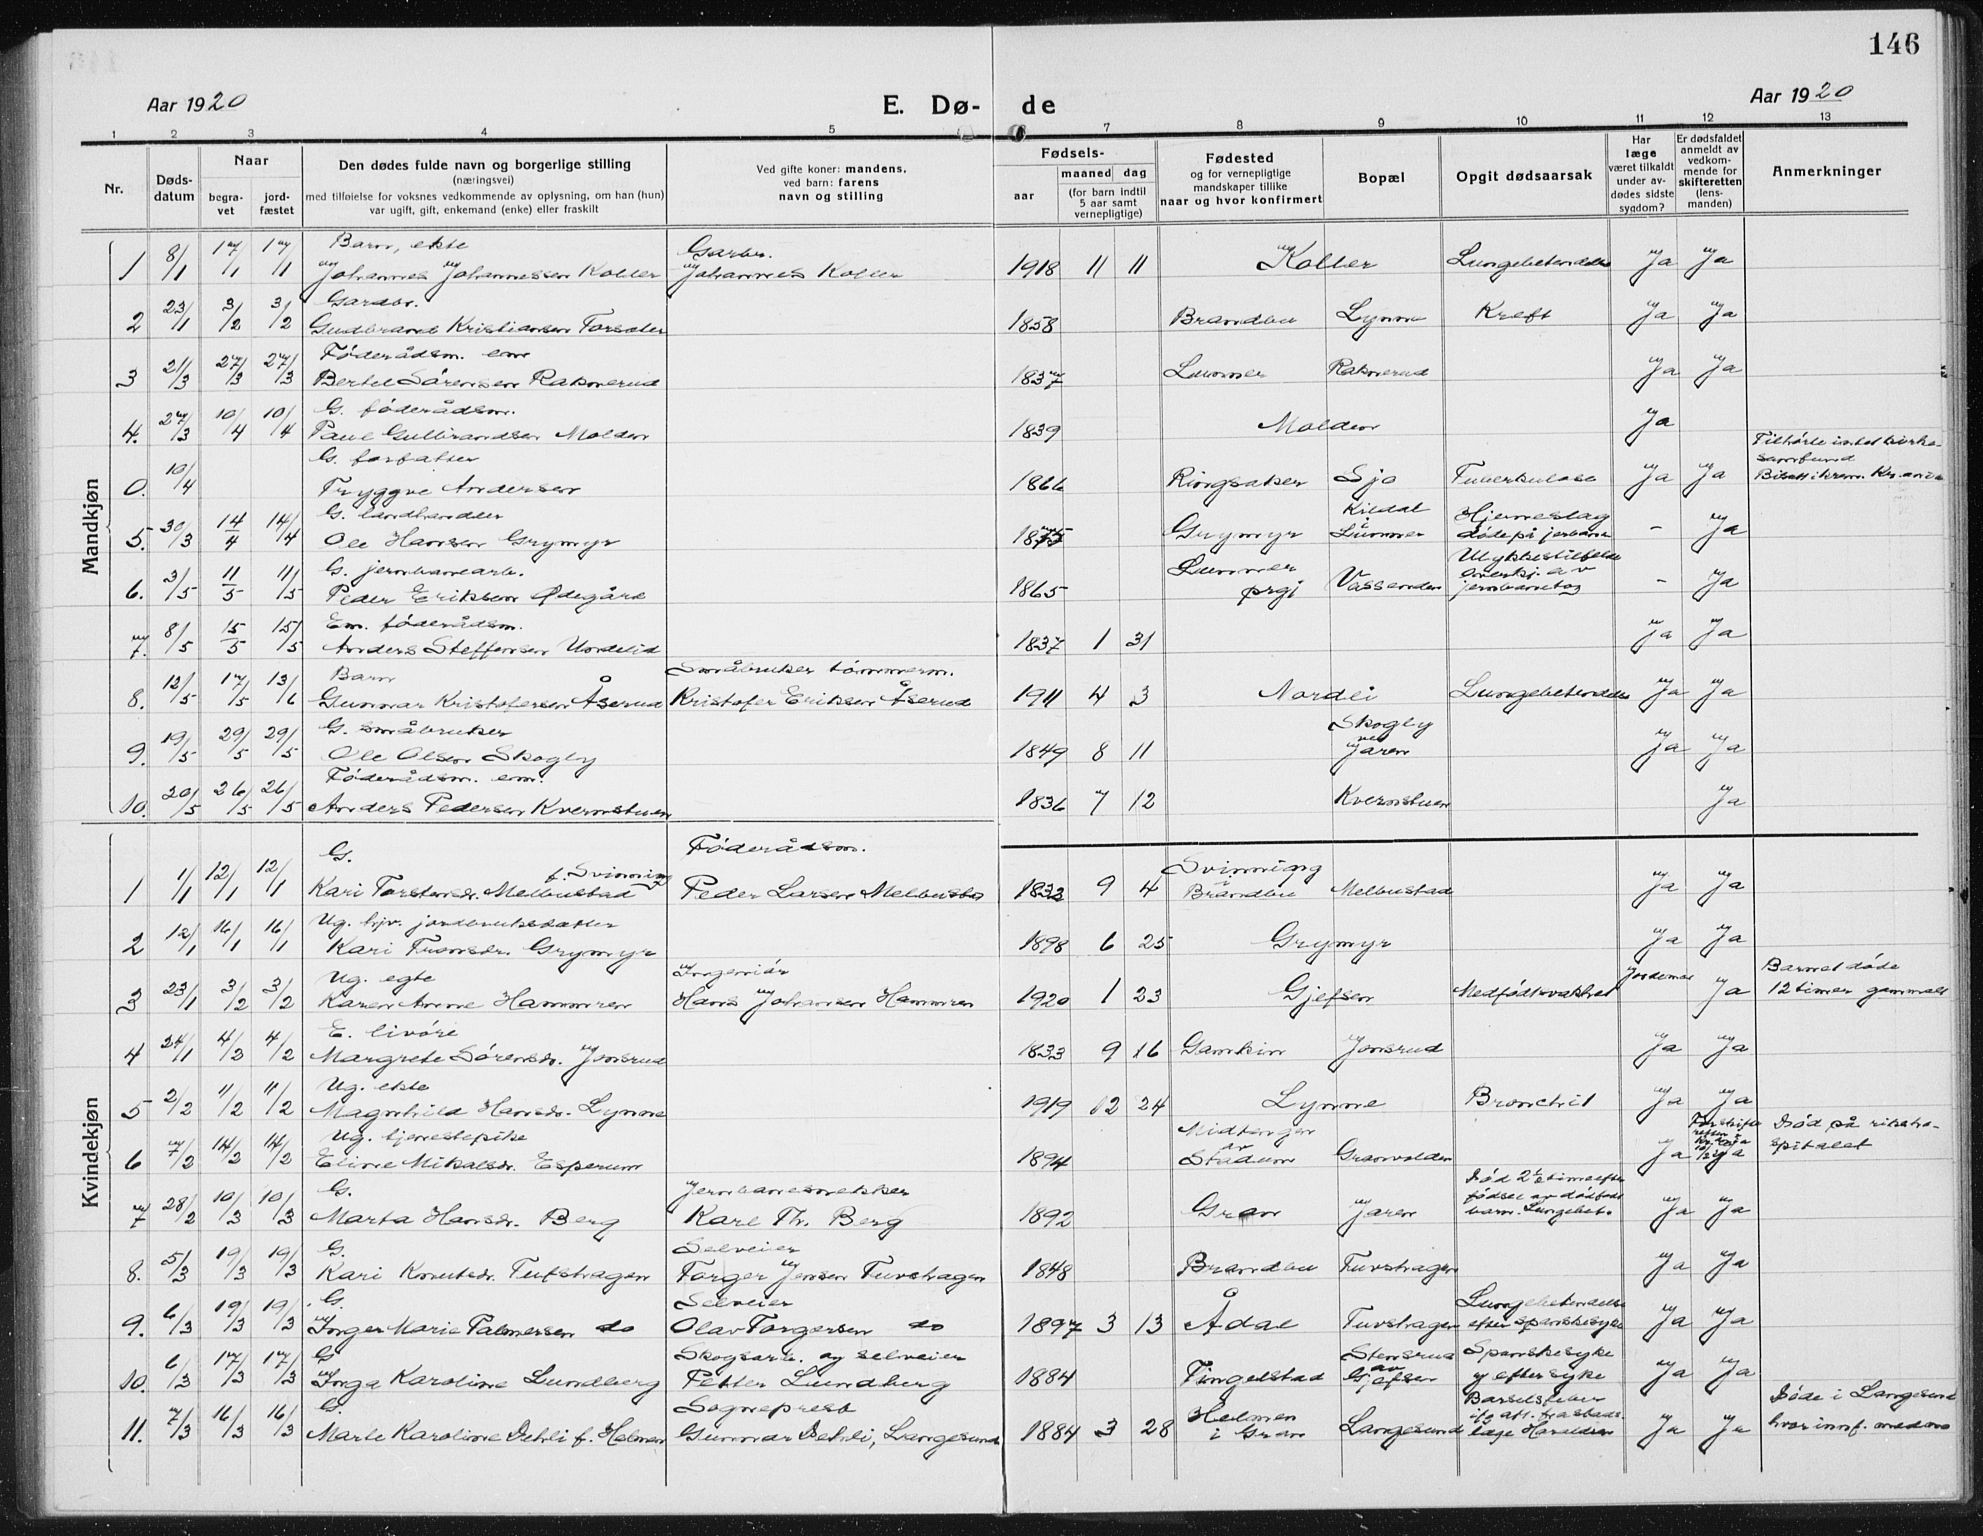 146
Aar 1920
E. Dø- de
Aar 1920
1 2 3 4 5 6 7 8 9 10 11 12 13
Nr.
Døds-
datum
Naar
begra-
vet
jord-
fæstet
Den dødes fulde navn og borgerlige stilling
(næringsvei)
med tilføielse for voksnes vedkommende av oplysning, om han (hun)
var ugift, gift, enkemand (enke) eller fraskilt
Ved gifte koner: mandens,
ved barn: farens
navn og stilling
Fødsels-
aar
maaned dag
(for barn indtil
5 aar samt
vernepligtige)
Fødested
og for vernepligtige
mandskaper tillike
naar og hvor konfirmert
Bopæl
Opgit dødsaarsak
Har
læge
været tilkaldt
under av-
dødes sidste
sygdom?
Er dødsfaldet
anmeldt av
vedkom-
mende for
skifteretten
(lens-
manden)
Anmerkninger
Mandkjøn
Barn, ekte Garbr.
1 8/1 17/1 17/1 Johannes Johannessen Koller Johannes Koller 1918 11 11 Koller Lungebetendelse Ja Ja
Gardbr.
2 23/1 3/2 3/2 Gudbrand Kristiansen Torsæter 1858 Brandbu Lynne Kreft Ja Ja
Føderådsm. em
3 21/3 27/3 27/3 Bertel Sørensen Raknerud 1837 Lunner Raknerud Ja Ja
G. føderådsm.
4. 27/3 10/4 10/4 Paul Gulbrandsen Molden 1839 Molden Ja
G. forfatter Tilhørte intet kirke-
samfund
0. 10/4 Tryggve Andersen 1866 Ringsaker Sjo Tuberkulose Ja Ja
G. landhandler Kildal Hjerneslag
5. 30/3 14/4 14/4 Ole Hansen Grymyr 1875 Grymyr i Lunner døde på jerbanen - Ja
G. jernbanearb. Lunner Ulykkestilfelde
overkj. av
6. 3/5 11/5 11/5 Peder Eriksen Ødegård 1865 prgj Vassenden jernbanetog - Ja
Em. føderådsm.
7. 8/5 15/5 15/5 Anders Steffensen 1837 1 31 Ja Ja
Barn Småbruker tømmerm.
8. 12/5 17/5 13/6 Gunnar Kristofersen Åserud Kristofer Eriksen Åserud 1911 4 3 Nordli Lungebetendelse Ja Ja
G. småbruker Skogly
9. 19/5 29/5 29/5 Ole Olsen Skogly 1849 8 11 ved Jaren Ja Ja
Føderådsm. em.
10. 20/5 26/5 26/5 Anders Pedersen Kvernstuen 1836 7 12 Kvernstuen Ja
Kvindekjøn
G. f. Svinning Føderådsm. Svinning
1 1/1 12/1 12/1 Kari Torstensdr. Melbustad Peder Larsen Melbustad 1832 9 4 i Brandbu Melbustad Ja Ja
Ug. hjv. jordbruksdatter
2 12/1 16/1 16/1 Kari Fransdr. Grymyr 1898 6 25 Grymyr Ja Ja
Ug. egte Ingeniør Jordemor Barnet døde
3 23/1 3/2 3/2 Karen Anne Hammren Hans Johansen Hammren 1920 1 23 Gjefsen Medfødt svakhet Ja 12 timer gammelt
E. livøre
4 24/1 4/2 4/2 Margrete Sørensdr. Jonsrud 1833 9 16 Gamkin Jonsrud Ja Ja
Ug. ekte
5 2/2 11/2 11/2 Magnhild Hansdr. Lynne 1919 12 24 Lynne Bronchit Ja Ja
Ug. tjenestepike Midtengen Død på rikshо-
6 7/2 14/2 14/2 Eline Mikalsdr. Esperum 1894 av Stadum Granvolden Ja Ja spitalet
G. Jernbanesnekker Død 2½ time efter
fødsel av dødfødt
7 28/2 10/3 10/3 Marta Hansdr. Berg Karl Th. Berg 1892 Gran Jaren barn. Lungebet. Ja Ja
G. Selveier
8. 5/3 19/3 19/3 Kari Knutsdr. Tufshagen Torger Jensen Tuvshagen 1848 Brandbu Tuvshagen Ja Ja
G. Selveier Lungebetendelse
9. 6/3 19/3 19/3 Inger Marie Palmersen do Olav Torgersen do 1897 3 13 Ådal Tuvshagen efter spanskesyke Ja Ja
G Skogsarb. og selveier Stensrud Spanskesyke
10. 6/3 17/3 17/3 Inga Karoline Lundberg Petter Lundberg 1884 Tingelstad av Gjefsen y eftersyke Ja Ja
G. Sogneprest Helmen Barselsfeber Døde i Langesund
11. 7/3 16/3 16/3 Marte Karoline Dehli f. Helmen Gunnar Dehli, Langesund 1884 3 28 i Gran Langesund læge Haraldsen Ja Ja